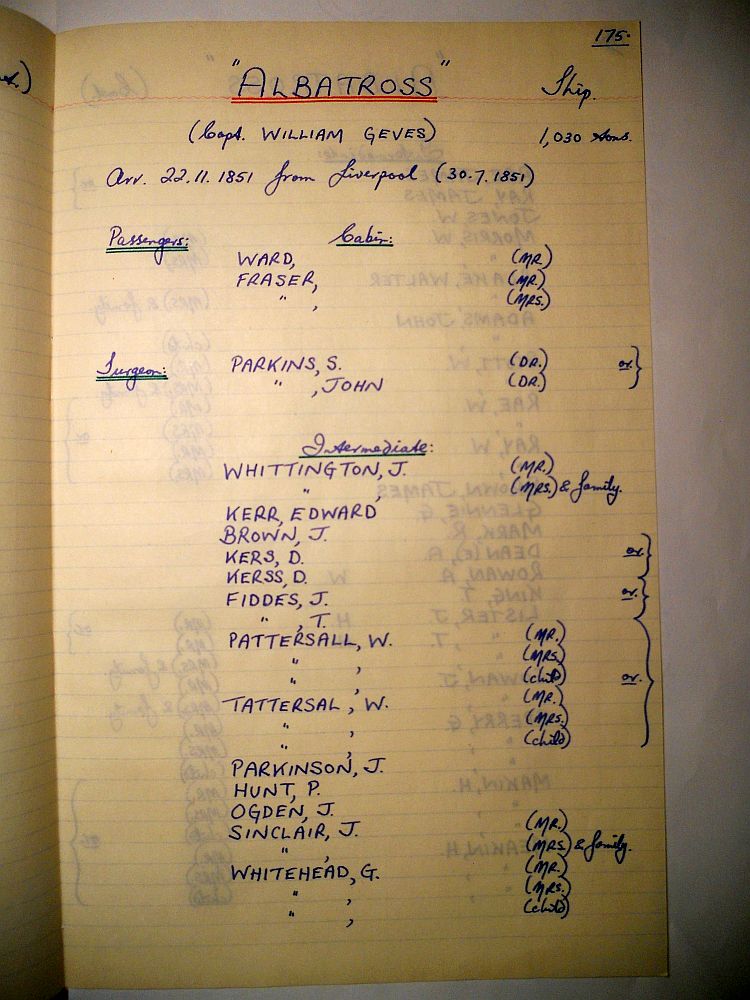 175.
"ALBATROSS" Ship.
(Capt. WILLIAM GEVES) 1,030 tons.
Arr. 22.11.1851 from Liverpool (30.7.1851)
Passengers: Cabin:
WARD, (MR.)
FRASER, (MR.)
" , (MRS.)
Surgeon: PARKINS, S. (DR.) or.
" , JOHN (DR.)
Intermediate:
WHITTINGTON, J. (MR.)
" , (MRS.) & family.
KERR, EDWARD
BROWN, J.
KERS, D. or.
KERSS, D.
FIDDES, J. or.
" , T.
PATTERSALL, W. (MR.)
" , (MRS.)
" , (child)
TATTERSAL, W. (MR.) or.
" , (MRS.)
" , (child)
PARKINSON, J.
HUNT, P.
OGDEN, J.
SINCLAIR, J. (MR.)
" , (MRS.) & family.
WHITEHEAD, G. (MR.)
" , (MRS.)
" , (child)